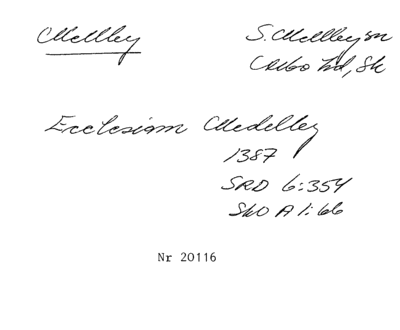 Mellby
S. Mellby sn
Albo hd, Sk
Ecclesiam Medelby
1387
SRD 6:354
SkO A 1:66
Nr 20116